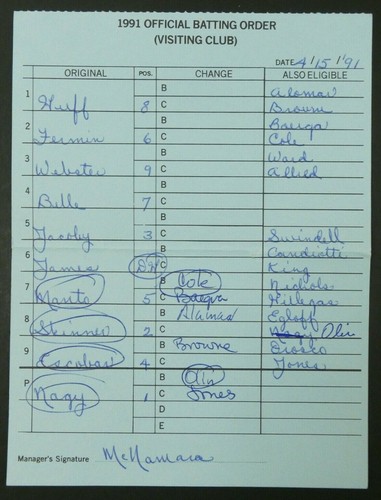 1991 OFFICIAL BATTING ORDER
(VISITING CLUB)
DATE 4/15/'91
ORIGINAL POS. CHANGE ALSO ELIGIBLE
1 Huff 8 B Alomar
C Browne
2 Fermin 6 B Baerga
C Cole
3 Webster 9 B Ward
C Allred
4 Belle 7 B
C
5 Jacoby 3 B
C Swindell
6 James DH B Candiotti
C King
7 Manto 5 B Cole Nichols
C Baerga Hillegas
8 Skinner 2 B Alomar Egloff
C Nagy Olin
9 Escobar 4 B Browne Orosco
C Jones
P Nagy 1 B Olin
C Jones
D
E
Manager's Signature McNamara